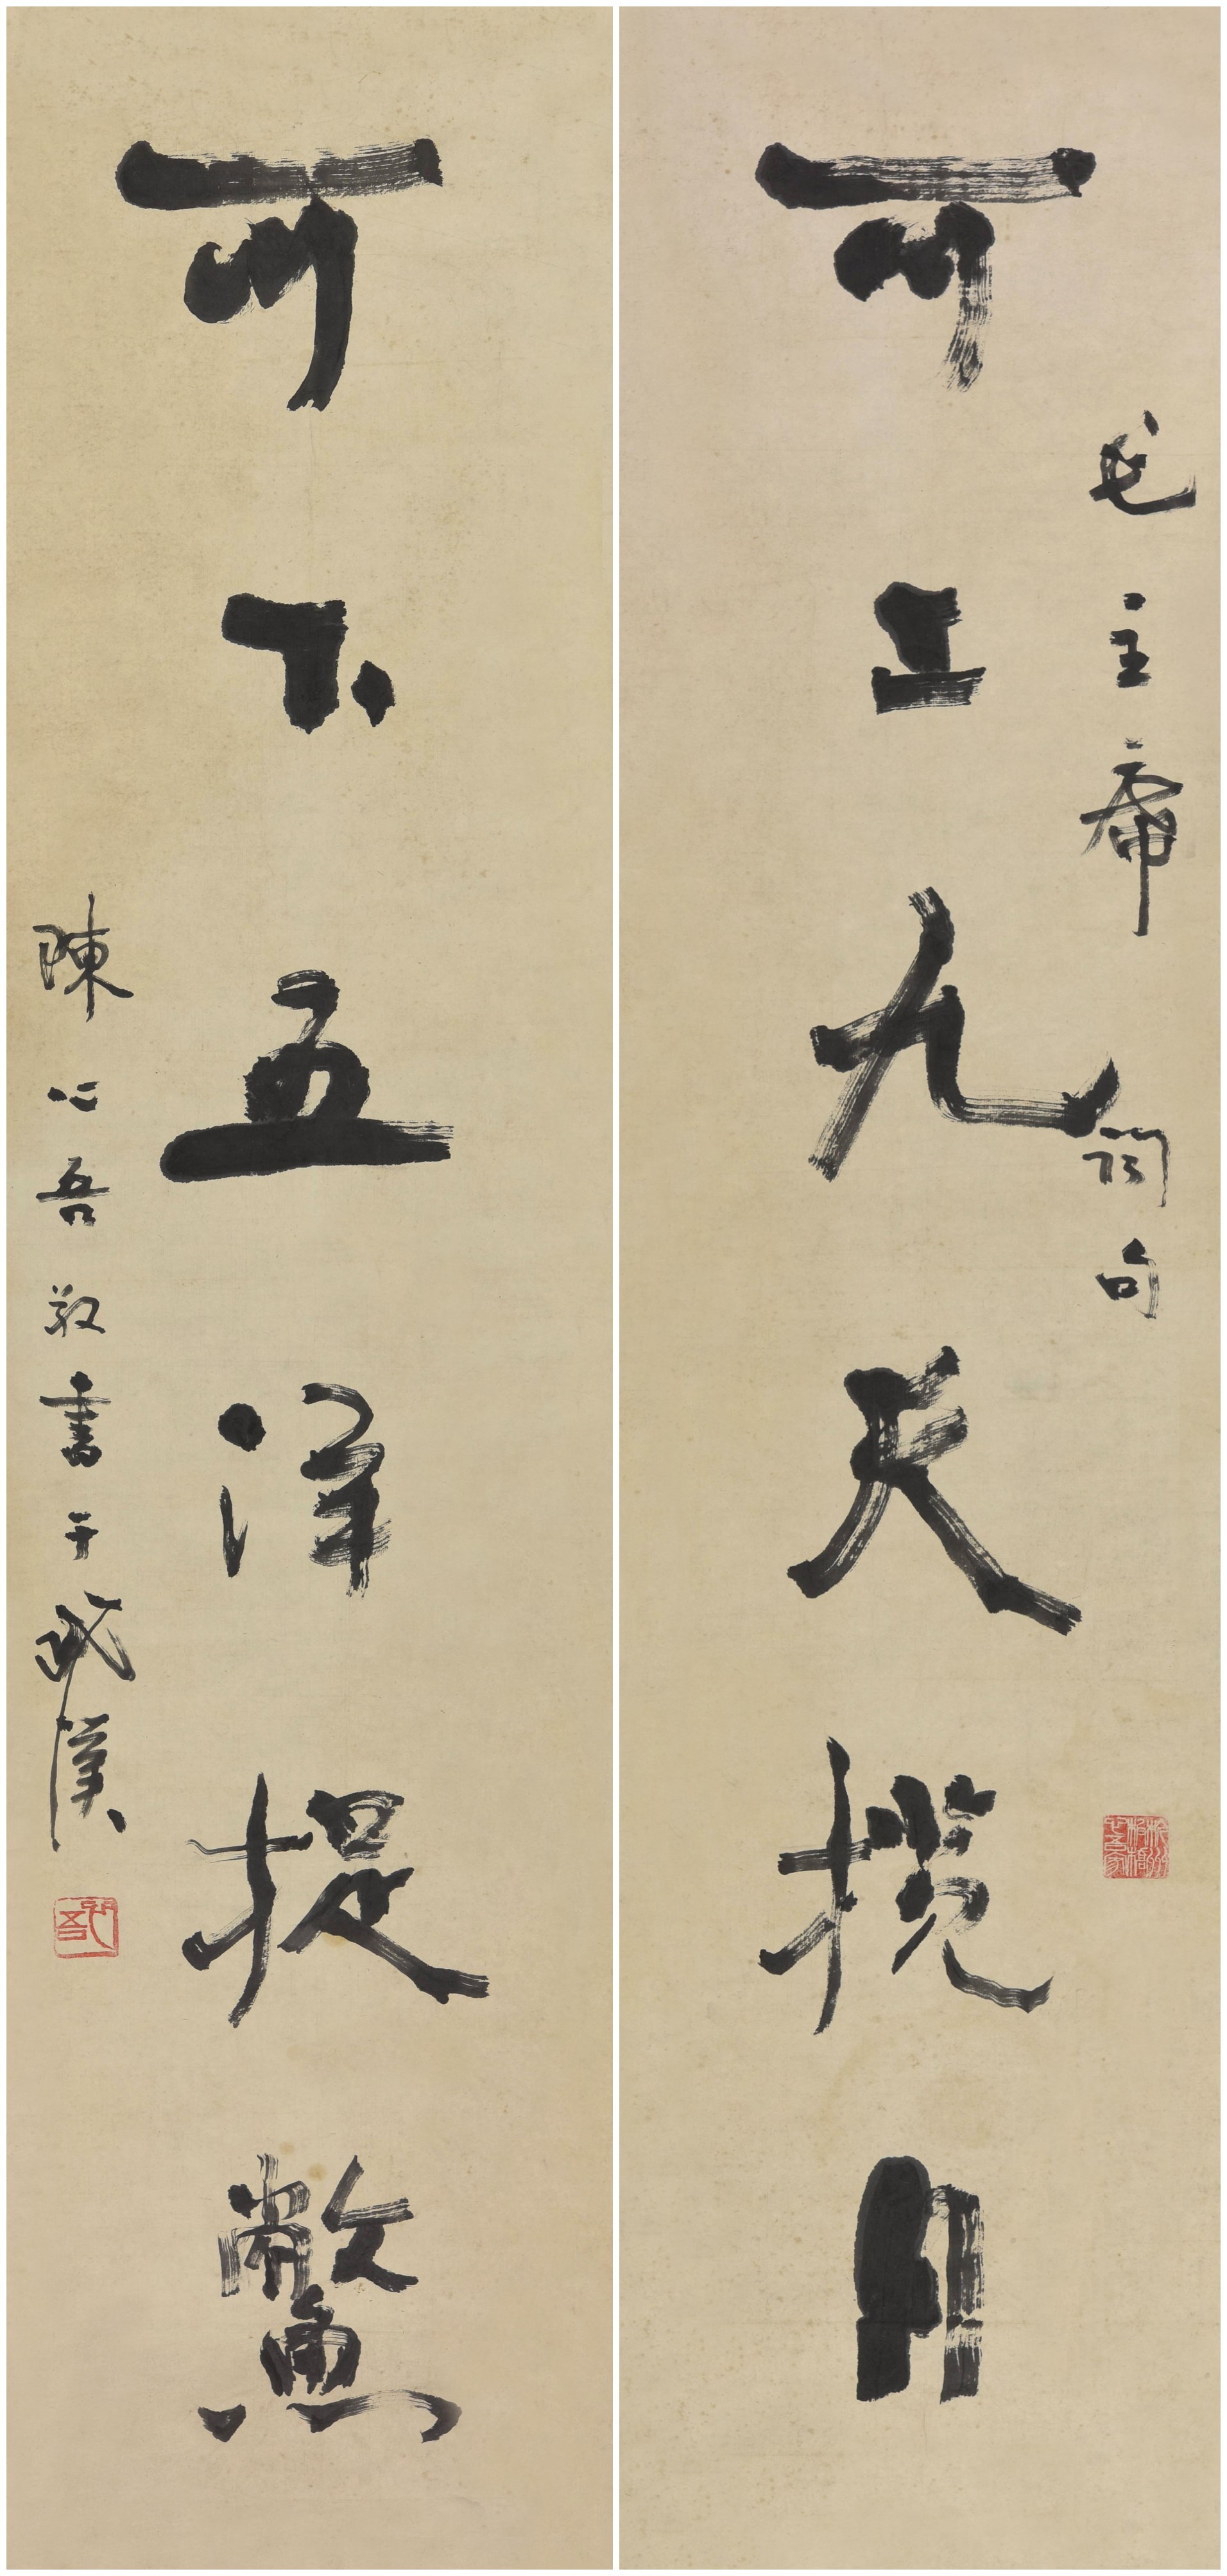 毛主席詞句
可上九天揽月
可下五洋捉鱉
陳心吾敬書于武漢
心吾